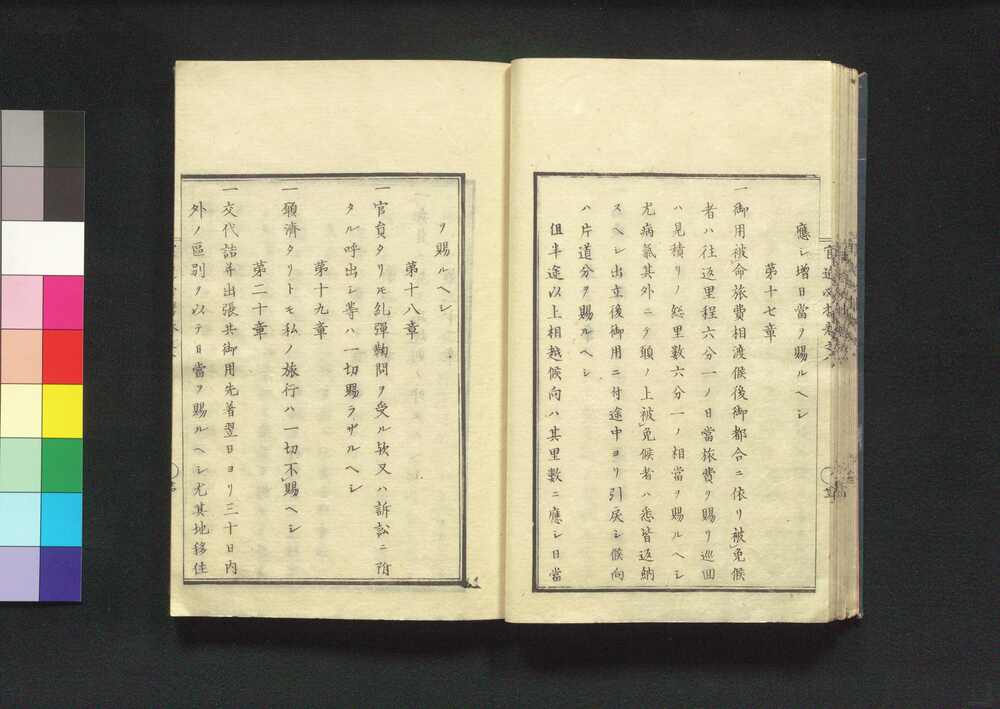 應シ增日當ヲ賜ルヘシ
第十七章
一御用被命旅費相渡候後御都合ニ依リ被免候
者ハ往返里程六分一ノ日當旅費ヲ賜リ巡回
ハ見積リノ総里数六分一ノ相當ヲ賜ルヘシ
尤病氣其外ニテ願ノ上被免候者ハ悉皆返納
スヘシ出立後御用ニ付途中ヨリ引戻シ候向
ハ片道分ヲ賜ルヘシ
但半途以上相越候向ハ其里數ニ應シ日當
ヲ賜ルヘシ
第十八章
一官員タリモ糺彈鞫問ヲ受ル欤又ハ訴訟ニ附
タル呼出シ等ハ一切賜ラサルヘシ
第十九章
一願濟タリトモ私ノ旅行ハ一切不賜ヘシ
第二十章
一交代詰并出張共御用先着翌日ヨリ三十日内
外ノ區別ヲ以テ日當ヲ賜ルヘシ尤其地移住